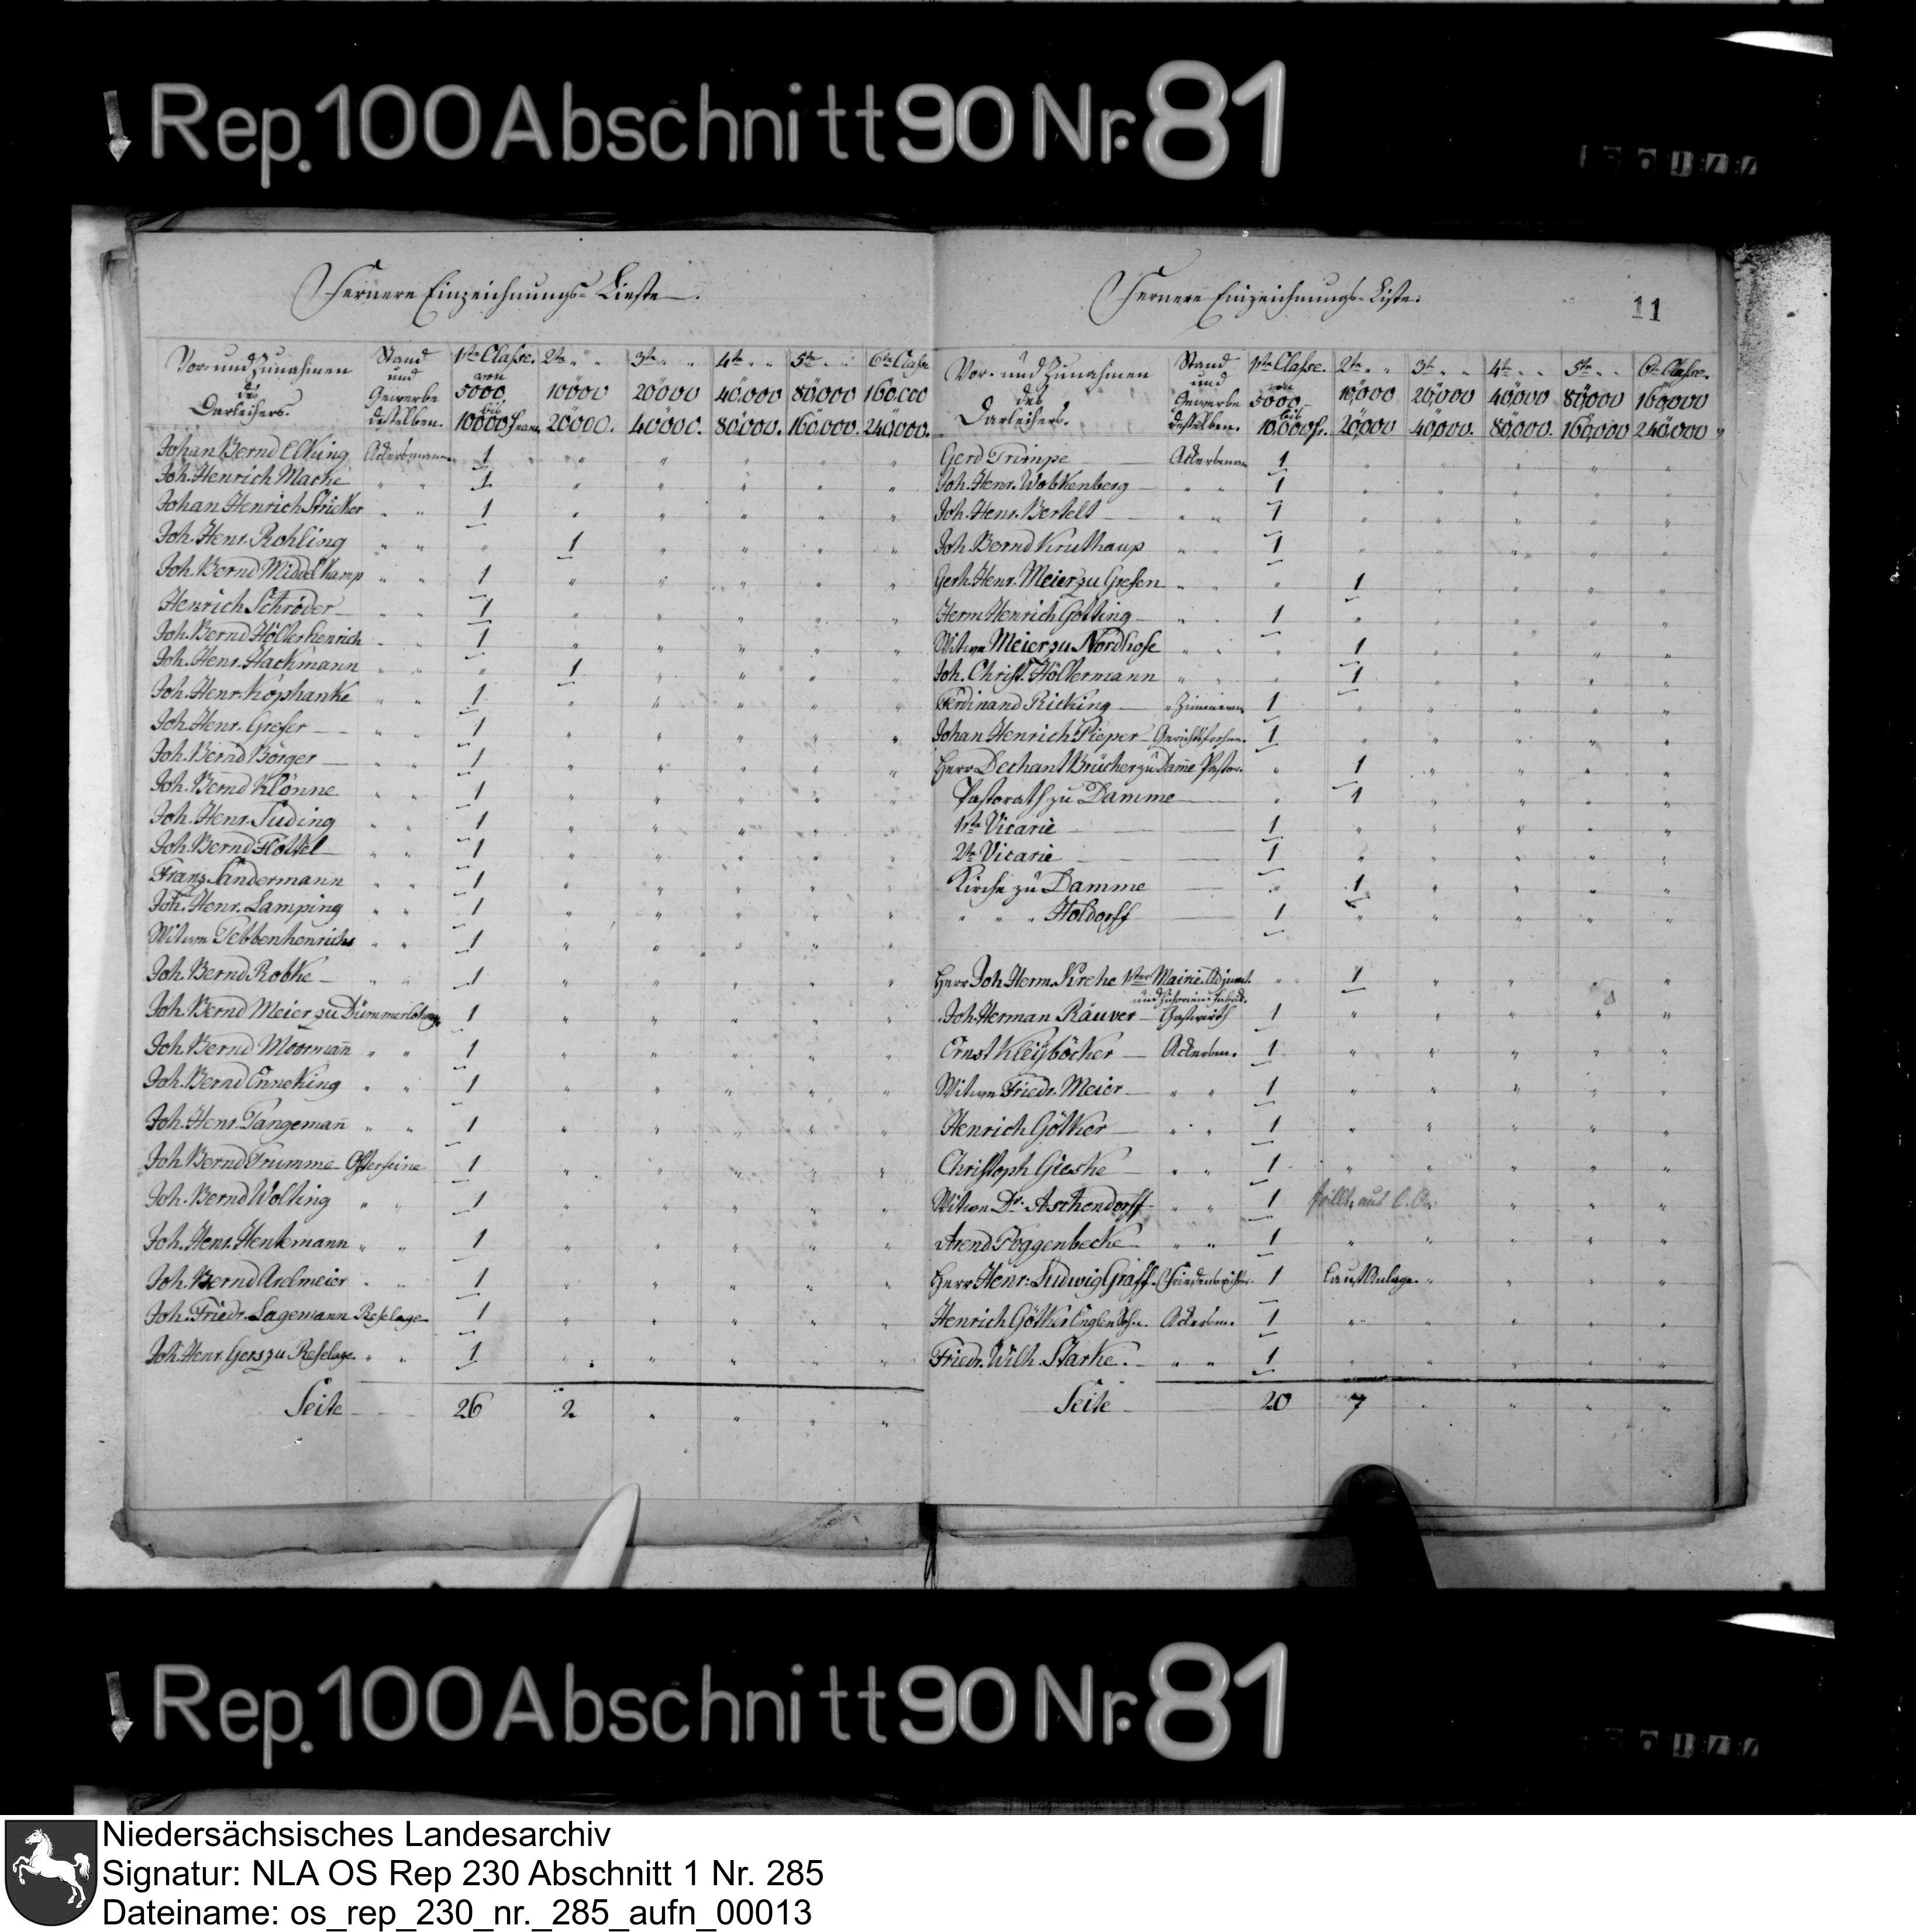 Rep. 100 Abschnitt 90 Nr. 81
Fernere Einzeichnungs-Lieste.
Vor- und Zunahmen des Darleihers. Stand und Gewerbe desselben. 1ste Classe. 2te " " 3te " " 4te " " 5te " " 6te Classe
von 5000 10000 20000 40.000 80000 160.000
bis 10000 Franc 20000. 40000. 80.000. 160.000. 240,000.
Johan Bernd Elking Ackersmann 1 " " " " "
Joh. Henrich Macke " " 1 " " " " "
Johan Henrich Stricker " " 1 " " " " "
Joh. Henr. Rohling " " " 1 " " " "
Joh. Bernd Middelkamp " " 1 " " " " "
Henrich Schröder " " 1 " " " " "
Joh. Bernd Hölterhenrich " " 1 " " " " "
Joh. Henr. Hackmann " " " 1 " " " "
Joh. Henr. Kophanke " " 1 " " " " "
Joh. Henr. Grefer " " 1 " " " " "
Joh. Bernd Börger " " 1 " " " " "
Joh. Bernd Klönne " " 1 " " " " "
Joh. Henr. Suding " " 1 " " " " "
Joh. Bernd Flottel " " 1 " " " " "
Franz Sandermann " " 1 " " " " "
Joh. Henr. Lamping " " 1 " " " " "
Witwe Tebbenhenrichs " " 1 " " " " "
Joh. Bernd Robke " " 1 " " " " "
Joh. Bernd Meier zu Dümmerlohausen 1 " " " " "
Joh. Bernd Moormann " " 1 " " " " "
Joh. Bernd Enneking " " 1 " " " " "
Joh. Henr. Tangemann " " 1 " " " " "
Joh. Bernd Trumme Osterfeine 1 " " " " "
Joh. Bernd Wolting " " 1 " " " " "
Joh. Henr. Henkemann " " 1 " " " " "
Joh. Bernd Arelmeier " " 1 " " " " "
Joh. Friedr. Lagemann Reselage 1 " " " " "
Joh. Henr. Gers zu Reselage " " 1 " " " " "
Seite 26 2 " " " "
Fernere Einzeichnungs-Liste.
11
Vor- und Zunahmen des Darleihers. Stand und Gewerbe desselben. 1ste Classe. 2te " " 3te " " 4te " " 5te " " 6te Classe.
von 5000 10,000 20,000 40,000 80,000 160,000
bis 10.000 fr. 20,000 40,000. 80,000. 160,000 240,000
Gerd Trimpe Ackersmann 1 " " " " "
Joh. Henr. Wobkenberg " " 1 " " " " "
Joh. Henr. Bertelt " " 1 " " " " "
Joh. Bernd Kruthaup " " 1 " " " " "
Gerh. Henr. Meier zu Grefen " " " 1 " " " "
Herm Henrich Gotting " " 1 " " " " "
Witwe Meier zu Nordhofe " " " 1 " " " "
Joh. Christ. Höltermann " " " 1 " " " "
Ferdinand Ricking " Zimmerm. 1 " " " " "
Johan Henrich Pieper 1 " " " " "
Herr Dechant Brücher zu Damme Pastor. " 1 " " " "
Pastorath zu Damme " 1 " " " "
1ste Vicarie 1 " " " " "
2te Vicarie 1 " " " " "
Kirche zu Damme " 1 " " " "
" " " Holdorff 1 " " " " "
Herr Joh Herm. Krehe 1ster Mairie Adjunct. " 1 " " " "
und Fabrik.
Joh. Herman Räuver Gastwirth 1 " " " " "
Ernst Kleyböcker Ackersm. 1 " " " " "
Witwe Friedr. Meier " " 1 " " " " "
Henrich Götker " " 1 " " " " "
Christoph Gieske " " 1 " " " " "
Witwe Dr. Aschendorff " " 1 " " "
Arend Poggenbecke " " 1 " " " " "
Herr Henr: Ludwig Gräff. Friedensrichter. 1 laut Anlage. " " " "
Henrich Götker Ackersm. 1 " " " " "
Friedr. Wilh. Starke. " " 1 " " " " "
Seite 20 7 " " " "
Rep. 100 Abschnitt 90 Nr. 81
Niedersächsisches Landesarchiv
Signatur: NLA OS Rep 230 Abschnitt 1 Nr. 285
Dateiname: os_rep_230_nr._285_aufn_00013